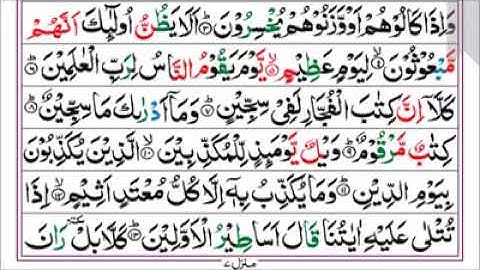 وَاِذَا كَالُوْهُمْ اَوْ وَّزَنُوْهُمْ يُخْسِرُوْنَ ؕ﴿۳﴾ اَلَا يَظُنُّ اُولٰٓئِكَ اَنَّهُمْ
مَّبْعُوْثُوْنَ ۙ﴿۴﴾ لِيَوْمٍ عَظِيْمٍ ۙ﴿۵﴾ يَّوْمَ يَقُوْمُ النَّاسُ لِرَبِّ الْعٰلَمِيْنَ ؕ﴿۶﴾
كَلَّاۤ اِنَّ كِتٰبَ الْفُجَّارِ لَفِيْ سِجِّيْنٍ ؕ﴿۷﴾ وَمَاۤ اَدْرٰىكَ مَا سِجِّيْنٌ ؕ﴿۸﴾
كِتٰبٌ مَّرْقُوْمٌ ؕ﴿۹﴾ وَيْلٌ يَّوْمَئِذٍ لِّلْمُكَذِّبِيْنَ ۙ﴿۱۰﴾ الَّذِيْنَ يُكَذِّبُوْنَ
بِيَوْمِ الدِّيْنِ ؕ﴿۱۱﴾ وَمَا يُكَذِّبُ بِهٖۤ اِلَّا كُلُّ مُعْتَدٍ اَثِيْمٍ ۙ﴿۱۲﴾ اِذَا
تُتْلٰى عَلَيْهِ اٰيٰتُنَا قَالَ اَسَاطِيْرُ الْاَوَّلِيْنَ ؕ﴿۱۳﴾ كَلَّا بَلْ ٚ رَانَ
منزل ۷